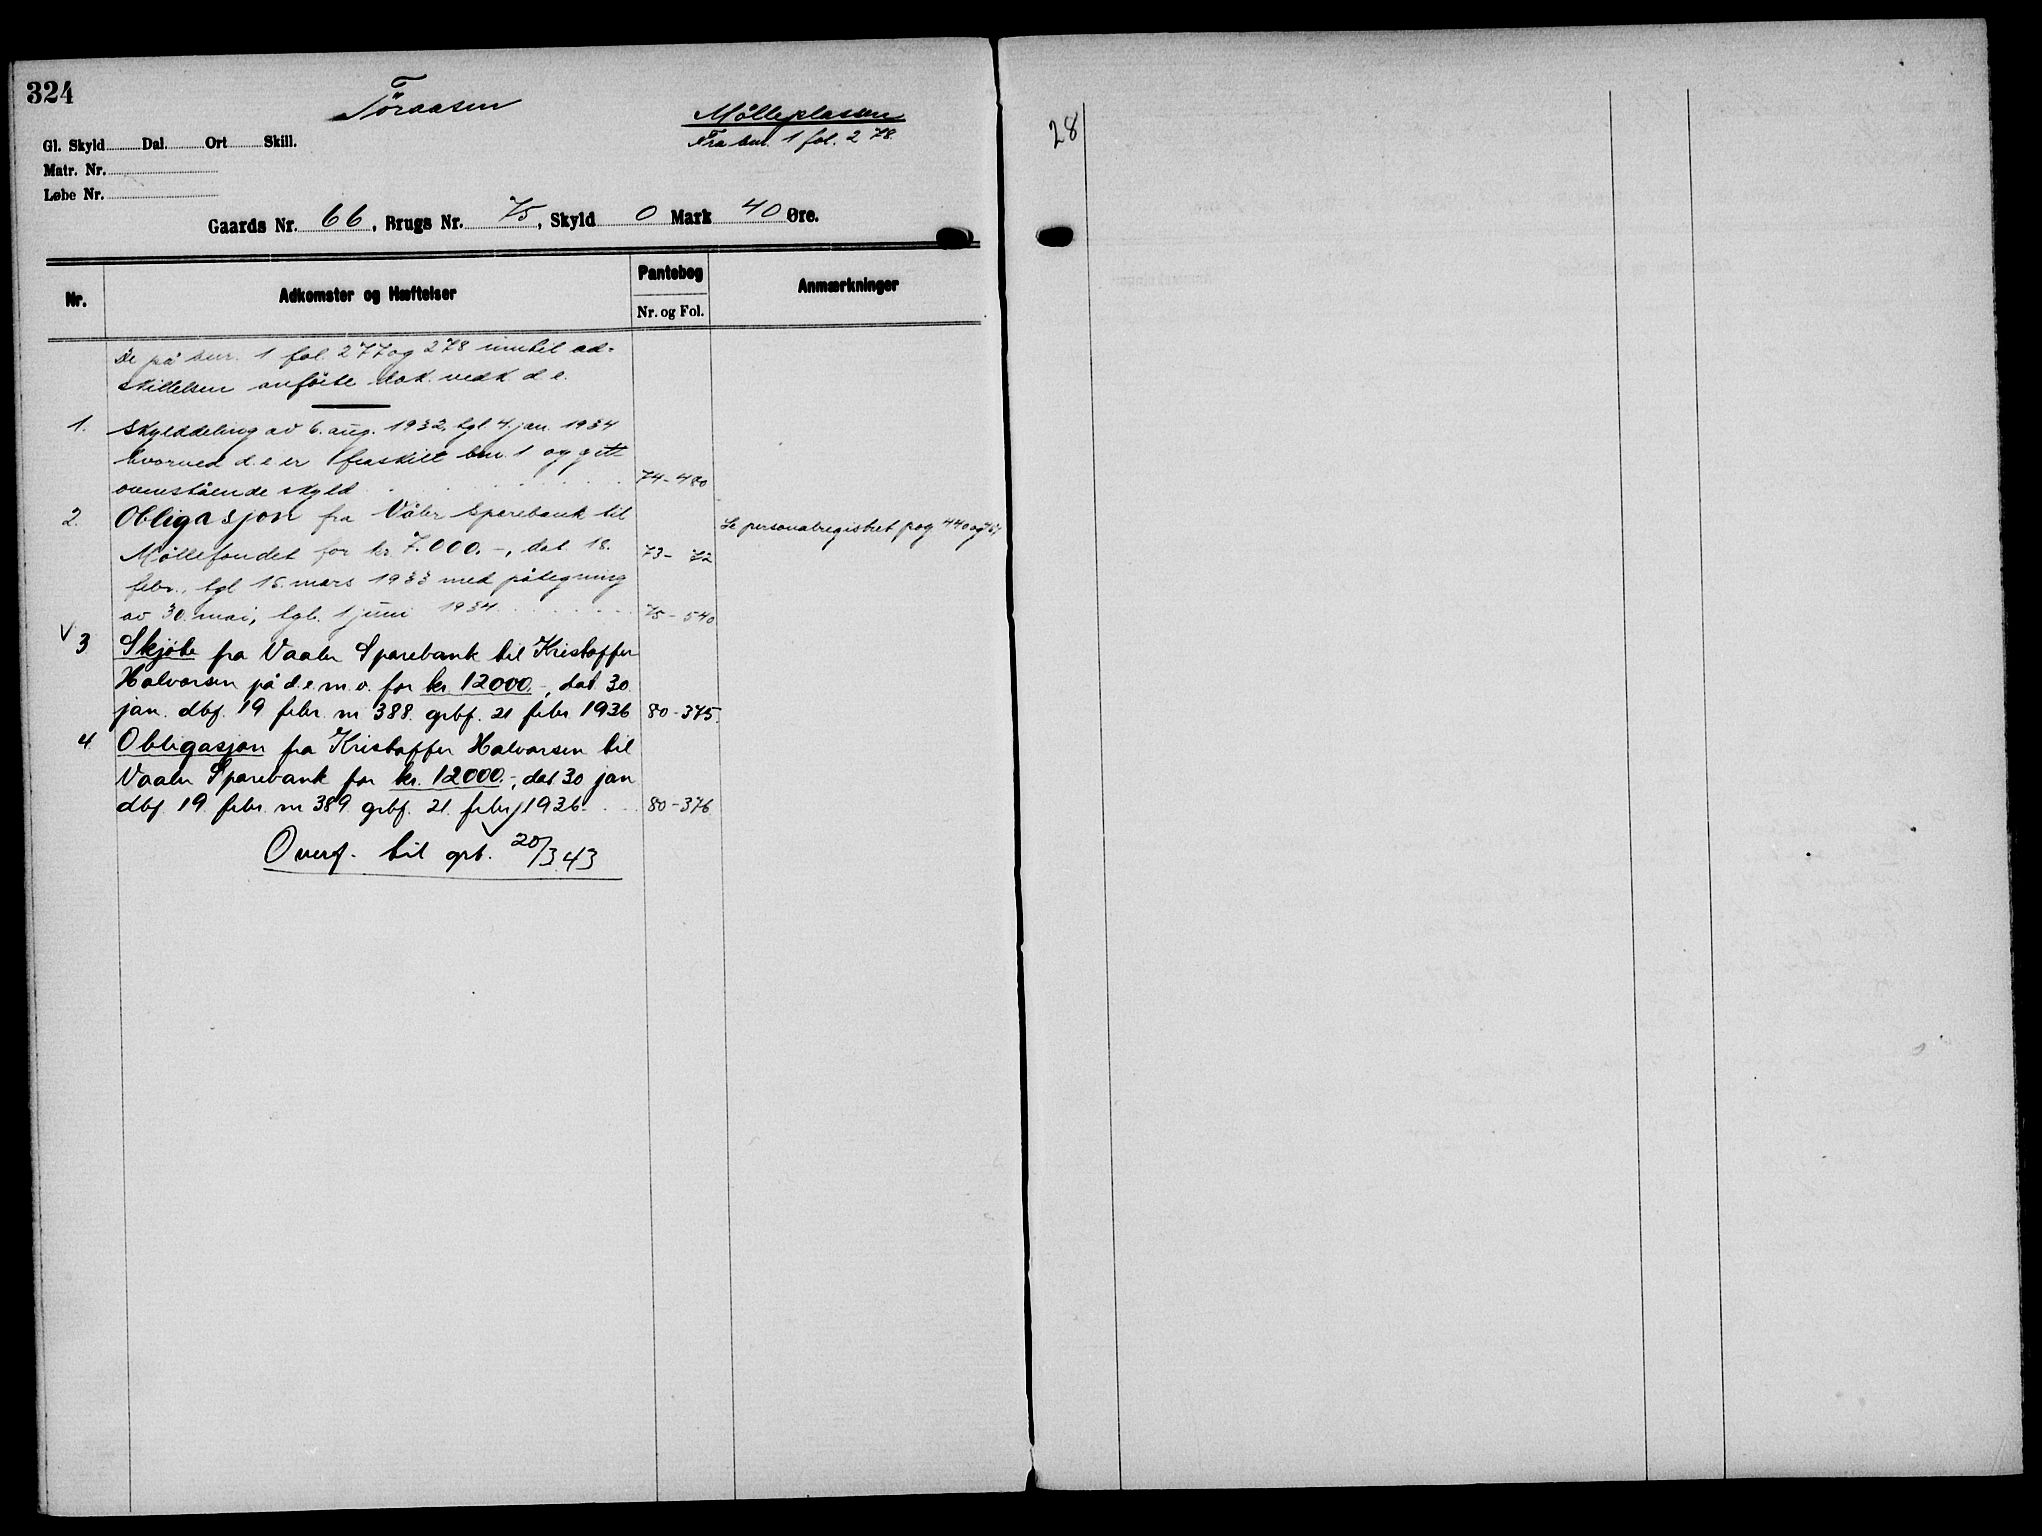 324
Töraasen
Mölleplassen
Fra bnr. 1 fol. 278
Gl. Skyld Dal. Ort Skill.
Matr. Nr.
Løbe Nr.
Gaards Nr. 66, Brugs Nr. 75, Skyld 0 Mark 40 Øre.
Nr. Adkomster og Hæftelser Pantebog Anmærkninger
Nr. og Fol.
De på bnr. 1 fol. 277 og 278 inntil ad-
skillelsen anförte dok. vedk d.e.
1. Skylddeling av 6. aug. 1932, tgl 4. jan. 1934
hvorved d.e er fraskilt bnr. 1 og gitt
ovenstående skyld 74-480
2. Obligasjon fra Våler Sparebank til
Möllefondet for kr 7.000.-, dat 18. 73-72
Se personalregistret pag 440 og
febr., tgl 15. mars 1933 med påtegning
av 30. mai, tgl. 1 juni 1934 75-540
V 3 Skjöte fra Vaaler Sparebank til Kristoffer
Halvorsen på d.e.m.v. for kr. 12000.-, dat 30
jan. dbf. 19 febr. nr 388. grbf. 21 febr 1936 80-375.
4 Obligasjon fra Kristoffer Halvorsen til
Vaaler Sparebank for kr. 12000.-, dat 30 jan
dbf. 19. febr. nr 389 grbf. 21. febr 1936. 80-376
Overf. til grb. 20/3.43
28